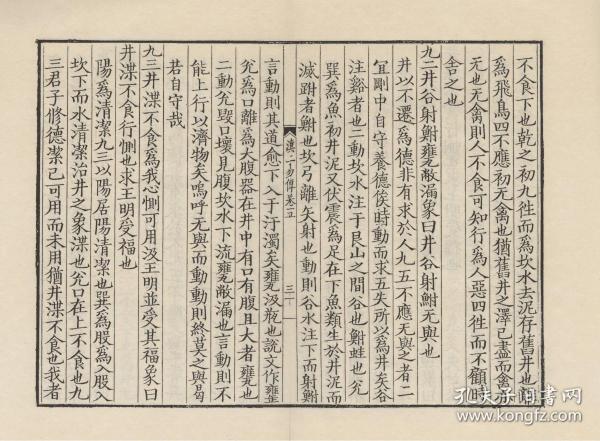 不食下也乾之初九徃而爲坎水去泥存舊井也離
爲飛鳥四不應初无禽也猶舊井之澤已盡而禽亦
无也无禽則人不食可知行爲人惡四徃而不顧時
舍之也
九二井谷射鮒甕敝漏象曰井谷射鮒无與也
井以不遷爲德非有求於人九五不應无與之者二
宜剛中自守養德俟時動而求五失所以爲井矣谷
注谿者也二動坎水注于艮山之間谷也鮒蛙也兊
巽爲魚初井泥又伏震爲足在下魚類生於井泥而
滅跗者鮒也坎弓離矢射也動則谷水注下而射鮒
漢上易傳卷五
三
言動則其道愈下入于汙濁矣甕汲瓶也說文作罋
兊爲口離爲大腹器在井中有口有腹且大者甕也
二動兊毀口壞見腹坎水下流甕敝漏也言動則不
能上行以濟物矣嗚呼无與而動動則終莫之與曷
若自守哉
九三井渫不食爲我心惻可用汲王明並受其福象曰
井渫不食行惻也求王明受福也
陽爲清潔九三以陽居陽清潔也巽爲股爲入股入
坎下而水清潔治井之象渫也兊口在上不食也九
三君子修德潔已可用而未用猶井渫不食也我者
孔夫子旧书网
www.kongfz.com